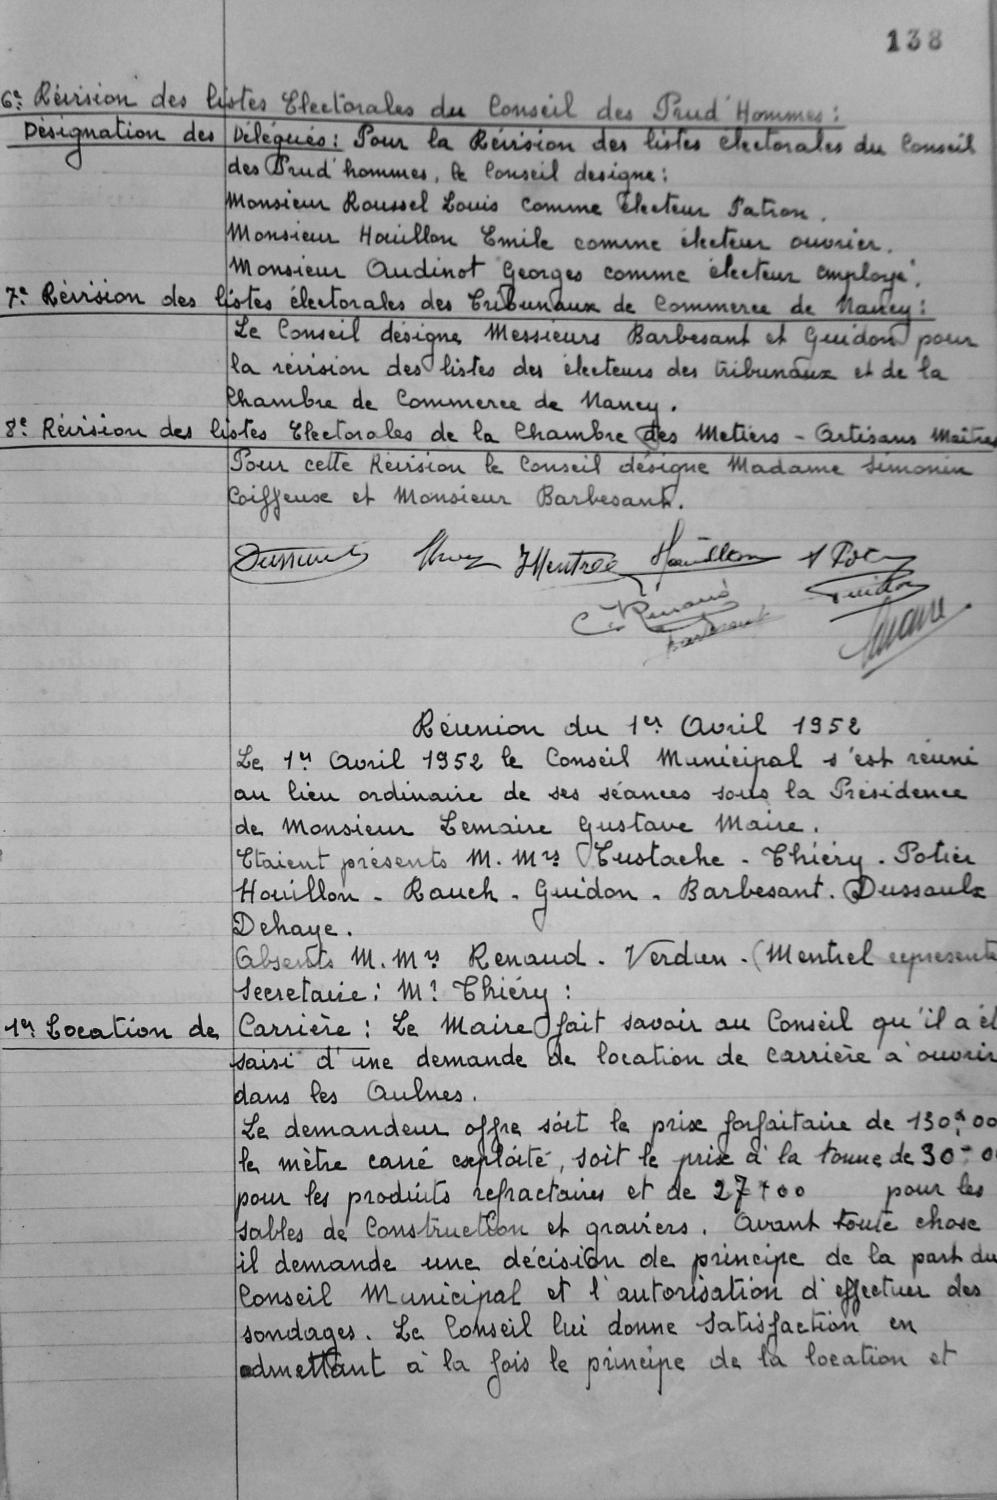 138
6e: Révision des listes Electorales du Conseil des Prud'Hommes:
Désignation des Délégués: Pour la Révision des listes électorales du Conseil
des Prud'hommes, le Conseil designe:
Monsieur Roussel Louis comme Electeur Patron.
Monsieur Houillon Emile comme électeur ouvrier.
Monsieur Audinot Georges comme électeur employé.
7e: Révision des listes électorales des Tribunaux de Commerce de Nancy:
Le Conseil désigne Messieurs Barbesant et Guidon pour
la révision des listes des électeurs des tribunaux et de la
Chambre de Commerce de Nancy.
8e Révision des listes Electorales de la Chambre des Metiers - Artisans Maîtres
Pour cette Révision le Conseil désigne Madame Simonin
Coiffeuse et Monsieur Barbesant.
Mentrel Houillon
Guidon
Renaud
Barbesant
Réunion du 1er Avril 1952
Le 1er Avril 1952 le Conseil Municipal s'est réuni
au lieu ordinaire de ses séances sous la Présidence
de Monsieur Lemaire Gustave Maire.
Etaient présents M. Mrs Eustache - Thiéry - Potier
Houillon - Rauch - Guidon - Barbesant. Dussaulx
Dehaye.
Absents M. Mrs Renaud - Verdun - (Mentrel represente
Secretaire: Mr Thiéry:
1er Location de Carrière: Le Maire fait savoir au Conseil qu'il a ét
saisi d'une demande de location de carrière à ouvrir
dans les Aulnes.
Le demandeur offre soit le prix forfaitaire de 130,00
le mètre carré exploité, soit le prix à la tonne de 30-0
pour les produits refractaires et de 27,00 pour les
sables de Construction et graviers. Avant toute chose
il demande une décision de principe de la part du
Conseil Municipal et l'autorisation d'effectuer des
sondages. Le Conseil lui donne satisfaction en
admettant à la fois le principe de la location et